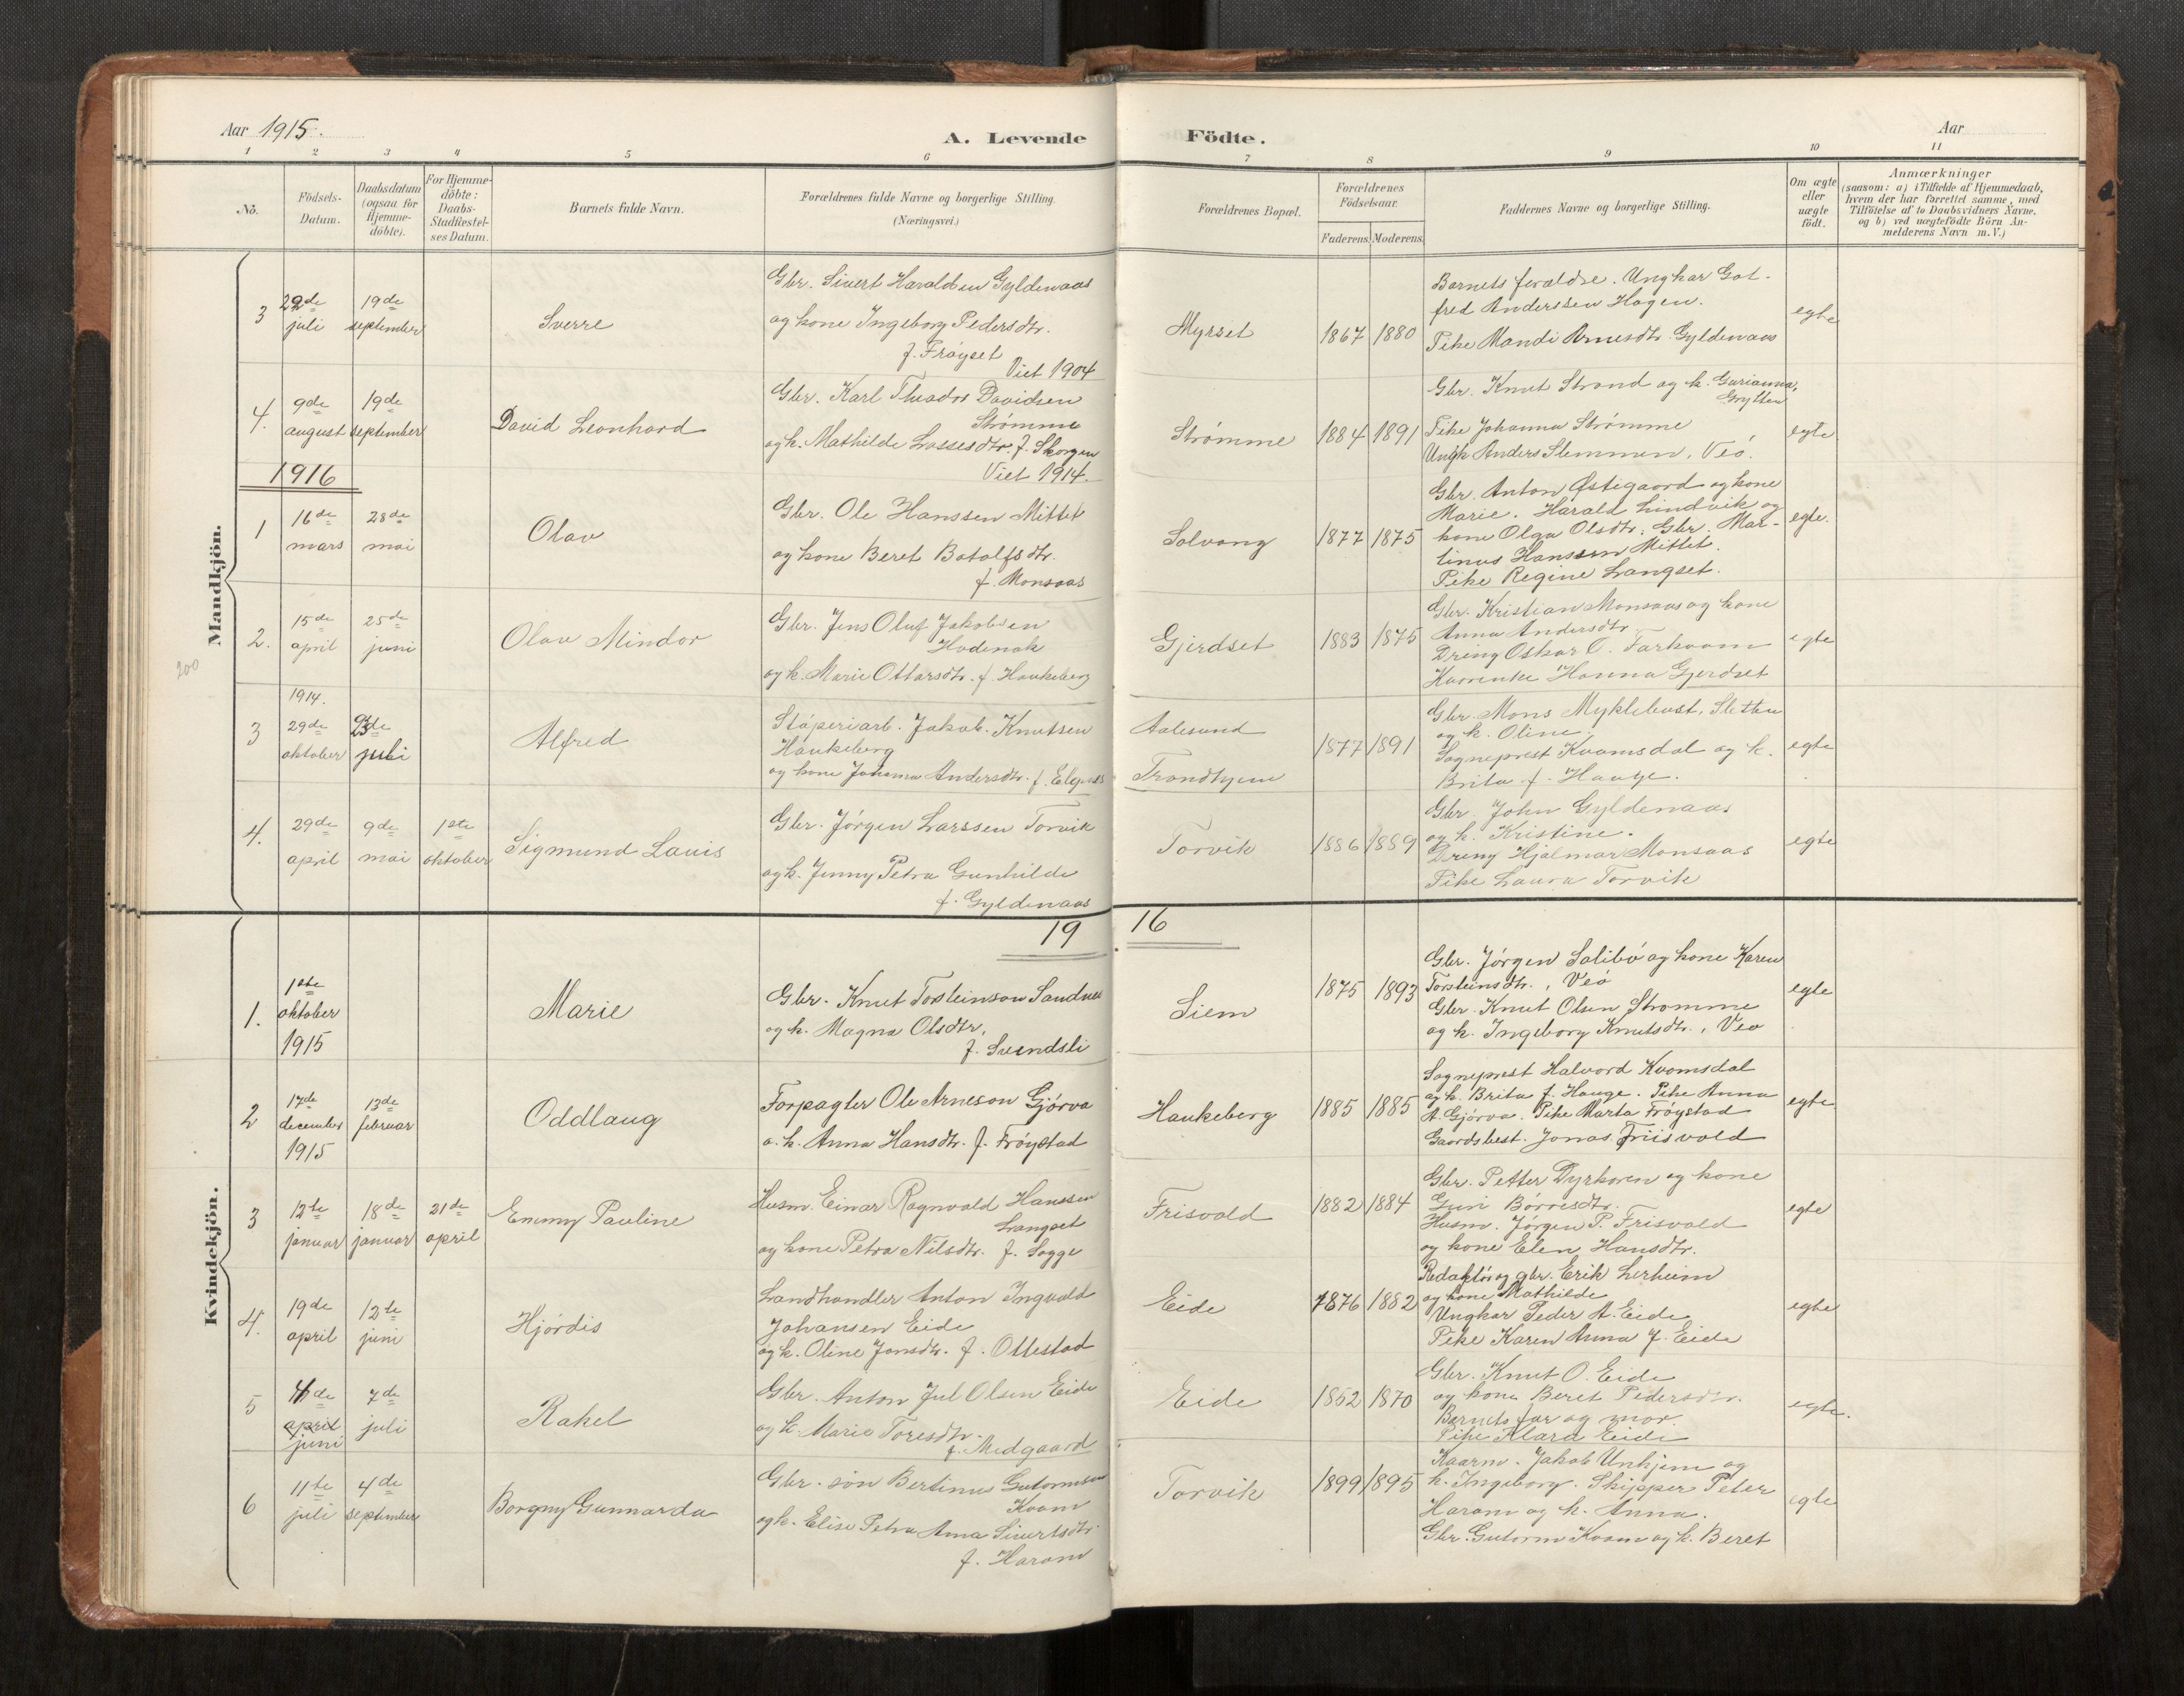 Aar 1915.
A. Levende Födte.
Aar
1 2 3 4 5 6 7 8 9 10 11
No.
Födsels-
Datum.
Daabsdatum
(ogsaa for
Hjemme-
döbte).
For Hjemme-
döbte:
Daabs-
Stadfæstel-
ses Datum.
Barnets fulde Navn.
Forældrenes fulde Navne og borgerlige Stilling.
(Næringsvei.)
Forældrenes Bopæl.
Forældrenes
Födselsaar.
Faderens. Moderens.
Faddernes Navne og borgerlige Stilling.
Om ægte
eller
uægte
födt.
Anmærkninger
(saasom: a) i Tilfælde af Hjemmedaab,
hvem der har forrettet samme, med
Tilföielse af to Daabsvidners Navne,
og b) ved uægtefödte Börn An-
melderens Navn m. V.)
Mandkjön.
3
22de
juli
19de
september
Sverre
Gbr. Sivert Haraldsen Gyldenaas
og kone Ingeborg Pedersdtr.
f. Frøyset
Viet 1904
Myrset
1867 1880
Barnets forældre. Ungkar Got-
fred Anderssen Hagen.
Pike Mandi Arnesdtr. Gyldenaas
egte
4.
9de
august
19de
september
David Leonhard
Gbr. Karl Theodor Davidsen
Strømme
og k. Mathilde Lassesdtr. f. Skorgen
Viet 1914.
Strømme
1884 1891
Gbr. Knut Strand og k. Gurianna,
Grytten
Pike Johanna Strømme
Ungk Anders Slemmen, Veö.
egte
1916
1
16de
mars
28de
mai
Olav
Gbr. Ole Hanssen Mittet
og kone Beret Botolfsdtr.
f. Monsaas
Solvang
1877 1875
Gbr. Anton Østigaard og kone
Marie. Harald Lindvik og
kone Olga Olsdtr. Gbr. Mar-
tinus Hanssen Mittet.
Pike Regine Langset.
egte.
2.
15de
april
25de
juni
Olav Mindor
Gbr. Jens Oluf Jakobsen
Hodenak
og k. Marie Ottarsdtr. f. Haukeberg
Gjerdset
1883 1875
Gbr. Kristian Monsaas og kone
Anna Andersdtr.
Dreng Oskar O. Tarkvam
Hanna Gjerdset
egte
200
3
1914.
29de
oktober
23de
juli
Alfred
Støperiarb. Jakob Knutsen
Haukeberg
og kone Johanna Andersdtr. f. Elgnes
Aalesund
Trondhjem
1877 1891
Gbr. Mons Myklebust, Sletten
og k. Oline.
Sogneprest Kvamsdal og k.
Brita f. Hauge.
egte
4.
29de
april
9de
mai
1ste
oktober
Sigmund Lavis
Gbr. Jørgen Larssen Torvik
og k. Jenny Petra Gunhilde
f. Gyldenaas
Torvik
1886 1889
Gbr. John Gyldenaas
og k. Kristine.
Dreng Hjalmar Monsaas
Pike Laura Torvik
egte
19 16
Kvindekjön.
1.
1ste
oktober
1915
Marie
Gbr. Knut Torsteinson Sandnes
og k. Magna Olsdtr.
f. Svendsli
Siem
1875 1893
Gbr. Jørgen Salibö og kone Karen
Torsteinsdtr., Veö
Gbr. Knut Olsen Strømme
og k. Ingeborg Knutsdtr., Veö
egte
2
17de
december
1915
13de
februar
Oddlaug
Forpagter Ole Arneson Gjörva
o. k. Anna Hansdtr. f. Frøystad
Haukeberg
1885 1885
Sogneprest Halvard Kvamsdal
og k. Brita f. Hauge. Pike Anna
A. Gjörva. Pike Marta Frøystad
Gaardsbest. Jonas Friisvold
egte
3
12te
januar
18de
januar
21de
april
Emmy Pauline
Husm. Einar Ragnvald Hanssen
Langset
og kone Petra Nilsdtr. f. Sogge
Frisvold
1882 1884
Gbr. Petter Dyrkoren og kone
Guri Börresdtr.
Husm. Jørgen P. Frisvold
og kone Elen Hansdtr.
egte
4.
19de
april
12te
juni
Hjördis
Landhandler Anton Ingvald
Johansen Eide
og k. Oline Jonsdtr. f. Ottestad
Eide
1876 1882
Redaktör og gbr. Erik Lerheim
og kone Mathilde
Ungkar Peder A. Eide
Pike Karen Anna J. Eide
egte
5
4de
april
juni
7de
juli
Rakel
Gbr. Anton Jul Olsen Eide
og k. Marie Toresdtr.
f. Midgaard
Eide
1852 1870
Gbr. Knut O. Eide
og kone Beret Pedersdtr.
Barnets far og mor.
Pike Klara Eide
egte.
6
11te
juli
4de
september
Borgny Gunnarda
Gbr. søn Bertinus Gutormsen
Kvam
og k. Elise Petra Anna Sivertsdtr.
f. Haram
Torvik
1899 1895
Kaarm. Jakob Unhjem og
k. Ingeborg. Skipper Peter
Haram og k. Anna.
Gbr. Gutorm Kvam og k. Beret
egte